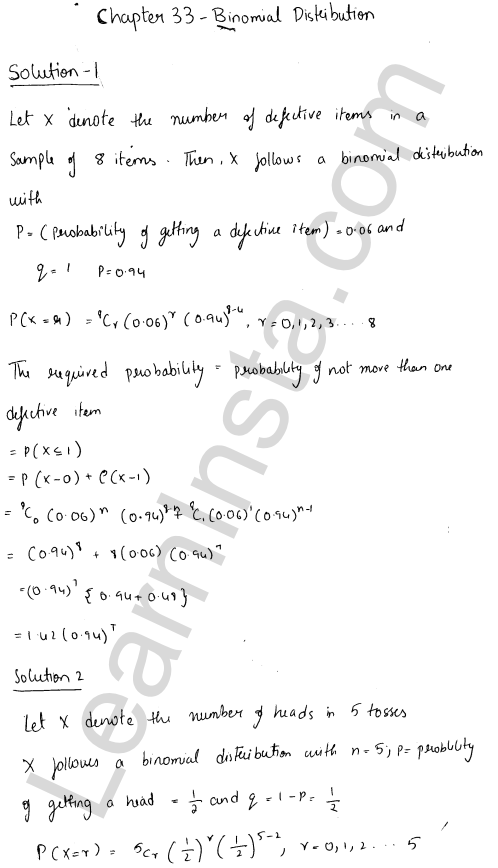 Chapter 33 - Binomial Distribution
Solution-1
Let X denote the number of defective items in a
Sample of 8 items. Then, X follows a binomial distribution
with
P = (Probability of getting a defective item) = 0.06 and
q = 1 P = 0.94
P(x = r) = ⁸Cᵣ (0.06)ʳ (0.94)⁸⁻ʳ, r = 0,1,2,3....8
The required probability = probability of not more than one
defective item
= P(X ≤ 1)
= P (x-0) + P(x-1)
= ⁸C₀ (0.06)ⁿ (0.94)⁸⁻ⁿ + ⁸C₁ (0.06)¹ (0.94)ⁿ⁻¹
= (0.94)⁸ + 8(0.06) (0.94)⁷
= (0.94)⁷ { 0.94 + 0.48}
= 1.42 (0.94)⁷
Solution 2
Let X denote the number of heads in 5 tosses
X follows a binomial distribution with n = 5; P = probblity
of getting a head = 1/2 and q = 1 - P = 1/2
P(X=r) = 5Cᵣ (1/2)ʳ (1/2)⁵⁻², r = 0,1,2 ... 5
LearnInsta.com